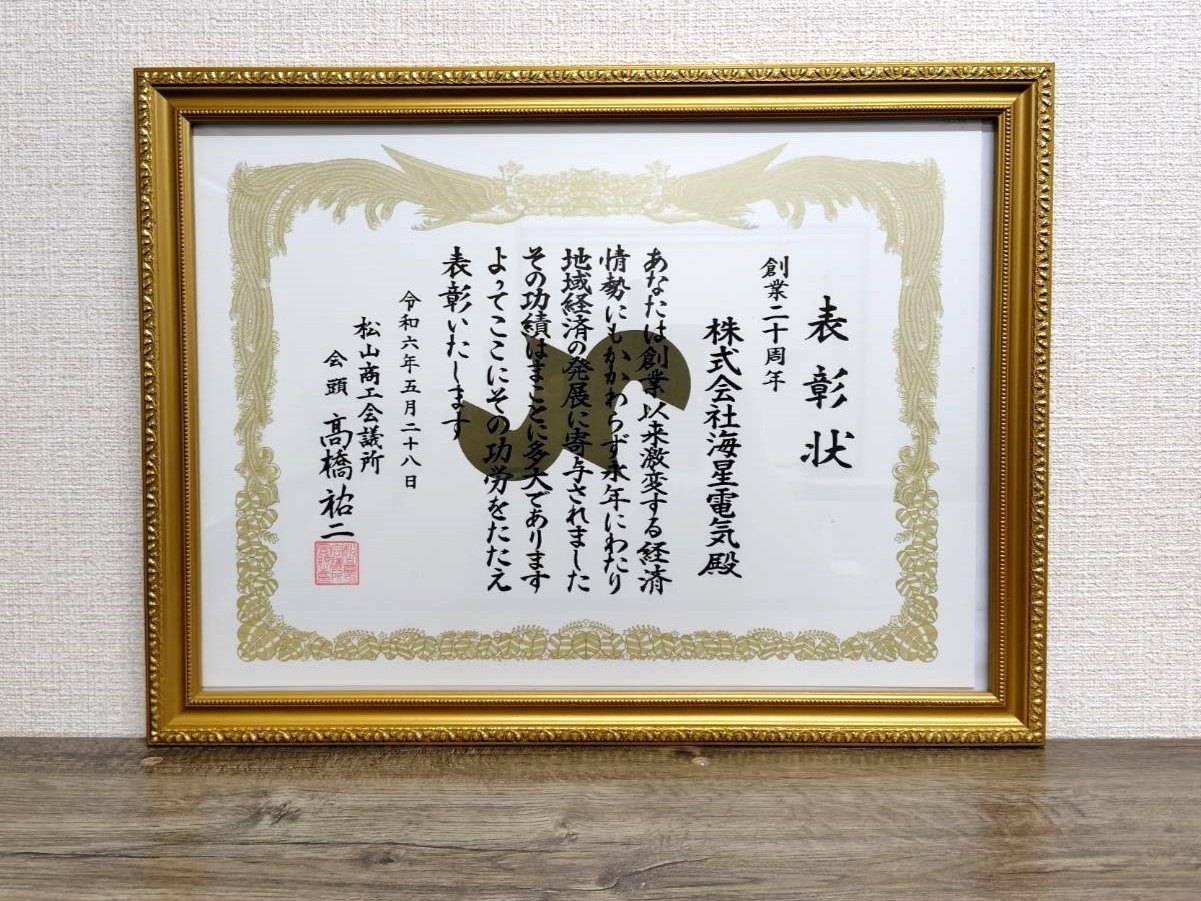 表彰状
創業二十周年
株式会社海星電気殿
あなたは創業以来激変する経済
情勢にもかかわらず永年にわたり
地域経済の発展に寄与されました
その功績はまことに多大であります
よってここにその功労をたたえ
表彰いたします
令和六年五月二十八日
松山商工会議所
会頭 髙橋祐二